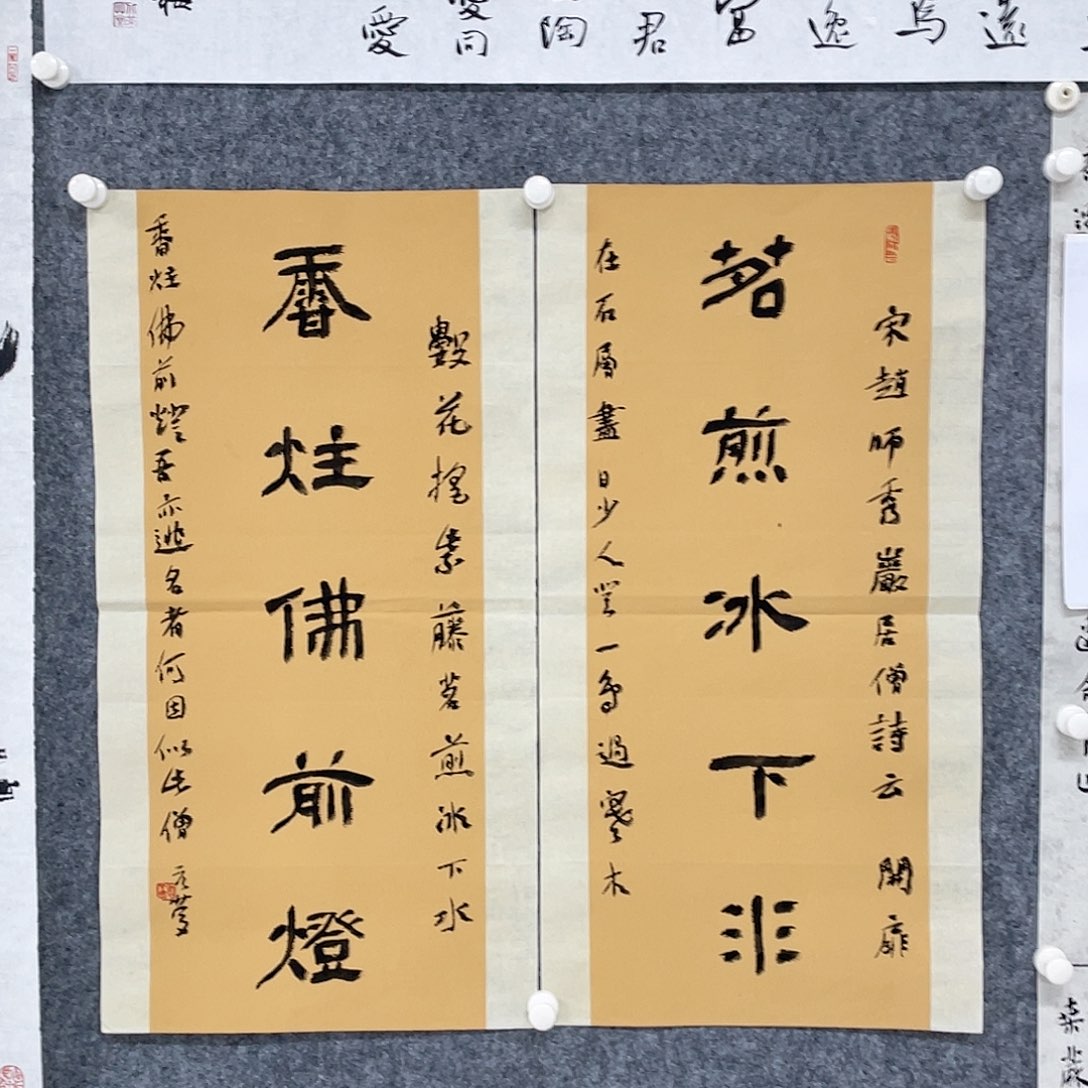 遠
焉
逸
君
陶
愛
宋趙師秀巖居僧詩云開扉
茗煎冰下水
在石層晝日少人登一鳥過寒木
數花搖紫藤茗煎冰下水
香炷佛前燈
香炷佛前燈吾亦逃名者何因似此僧